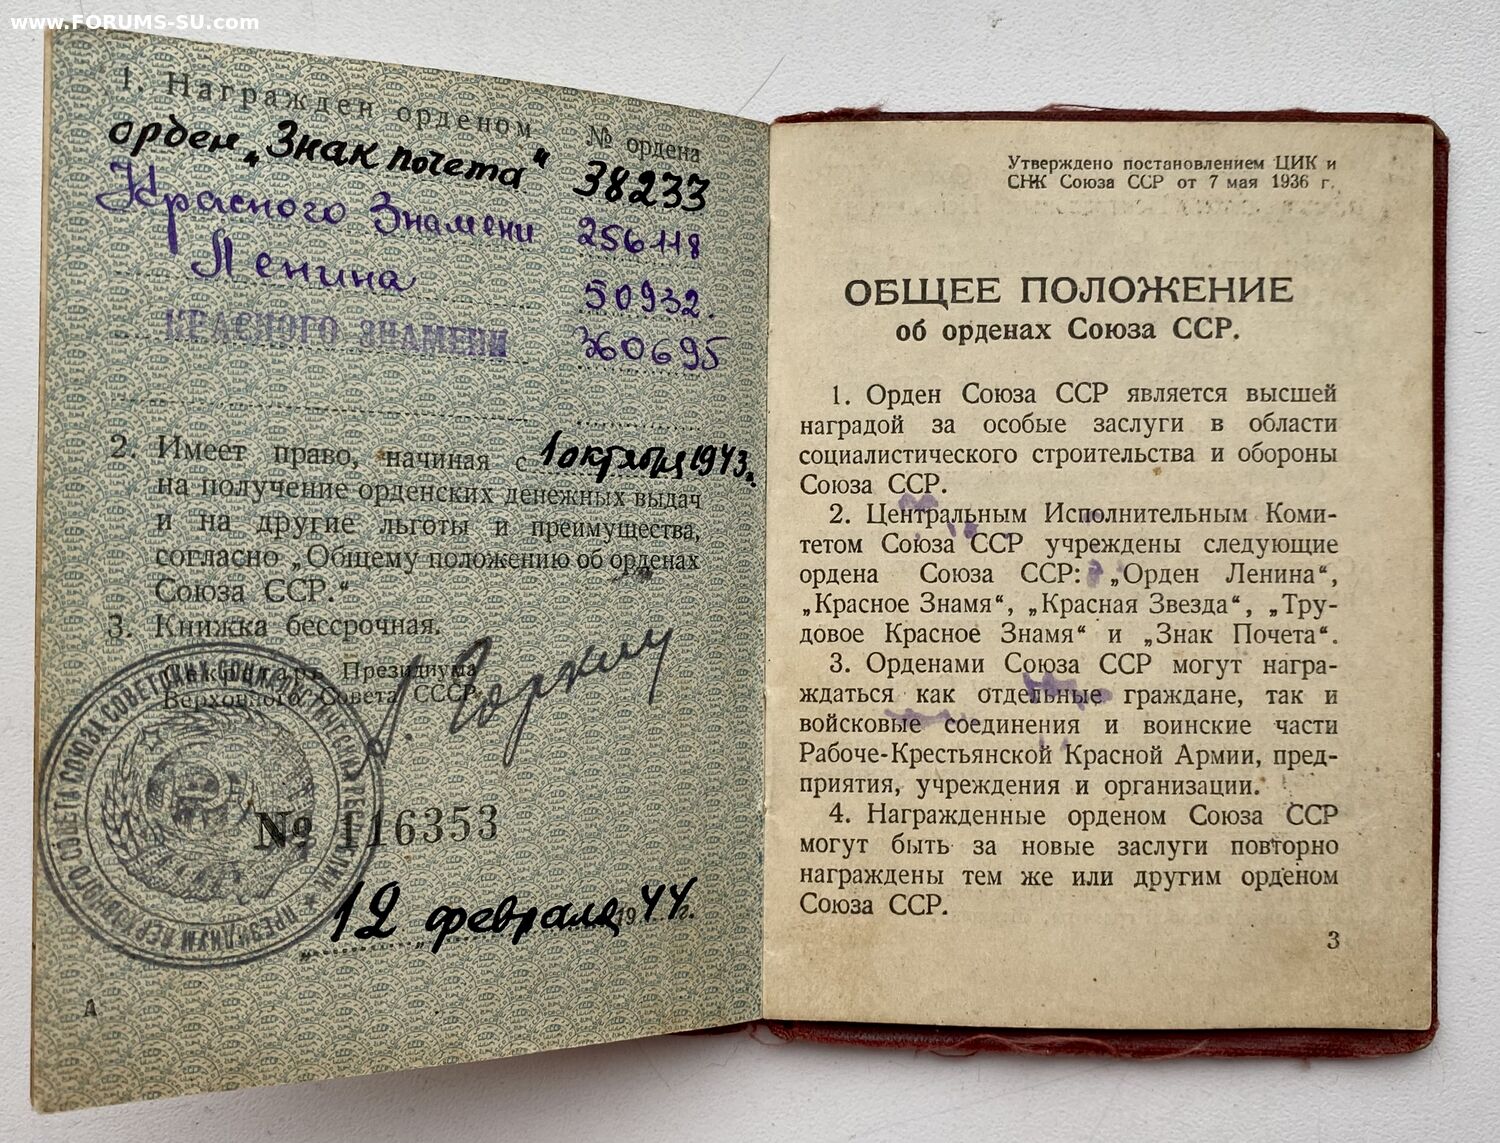 www.FORUMS-SU.com
1. Награжден орденом № ордена
орден „Знак почета" 38233
Красного Знамени 256118
Ленина 50932.
КРАСНОГО ЗНАМЕНИ 360695
2. Имеет право, начиная с 1 октября 1943г.
на получение орденских денежных выдач
и на другие льготы и преимущества,
согласно „Общему положению об орденах
Союза ССР."
3. Книжка бессрочная.
Секретарь Президиума
Верховного Совета СССР
А. Горкин
ПРЕЗИДИУМ ВЕРХОВНОГО СОВЕТА СОЮЗА СОВЕТСКИХ СОЦИАЛИСТИЧЕСКИХ РЕСПУБЛИК
№ 116353
12 февраля 1944 г.
А
Утверждено постановлением ЦИК и
СНК Союза ССР от 7 мая 1936 г.
ОБЩЕЕ ПОЛОЖЕНИЕ
об орденах Союза ССР.
1. Орден Союза ССР является высшей
наградой за особые заслуги в области
социалистического строительства и обороны
Союза ССР.
2. Центральным Исполнительным Коми-
тетом Союза ССР учреждены следующие
ордена Союза ССР: „Орден Ленина“,
„Красное Знамя“, „Красная Звезда“, „Тру-
довое Красное Знамя“ и „Знак Почета“.
3. Орденами Союза ССР могут награ-
ждаться как отдельные граждане, так и
войсковые соединения и воинские части
Рабоче-Крестьянской Красной Армии, пред-
приятия, учреждения и организации.
4. Награжденные орденом Союза ССР
могут быть за новые заслуги повторно
награждены тем же или другим орденом
Союза ССР.
3